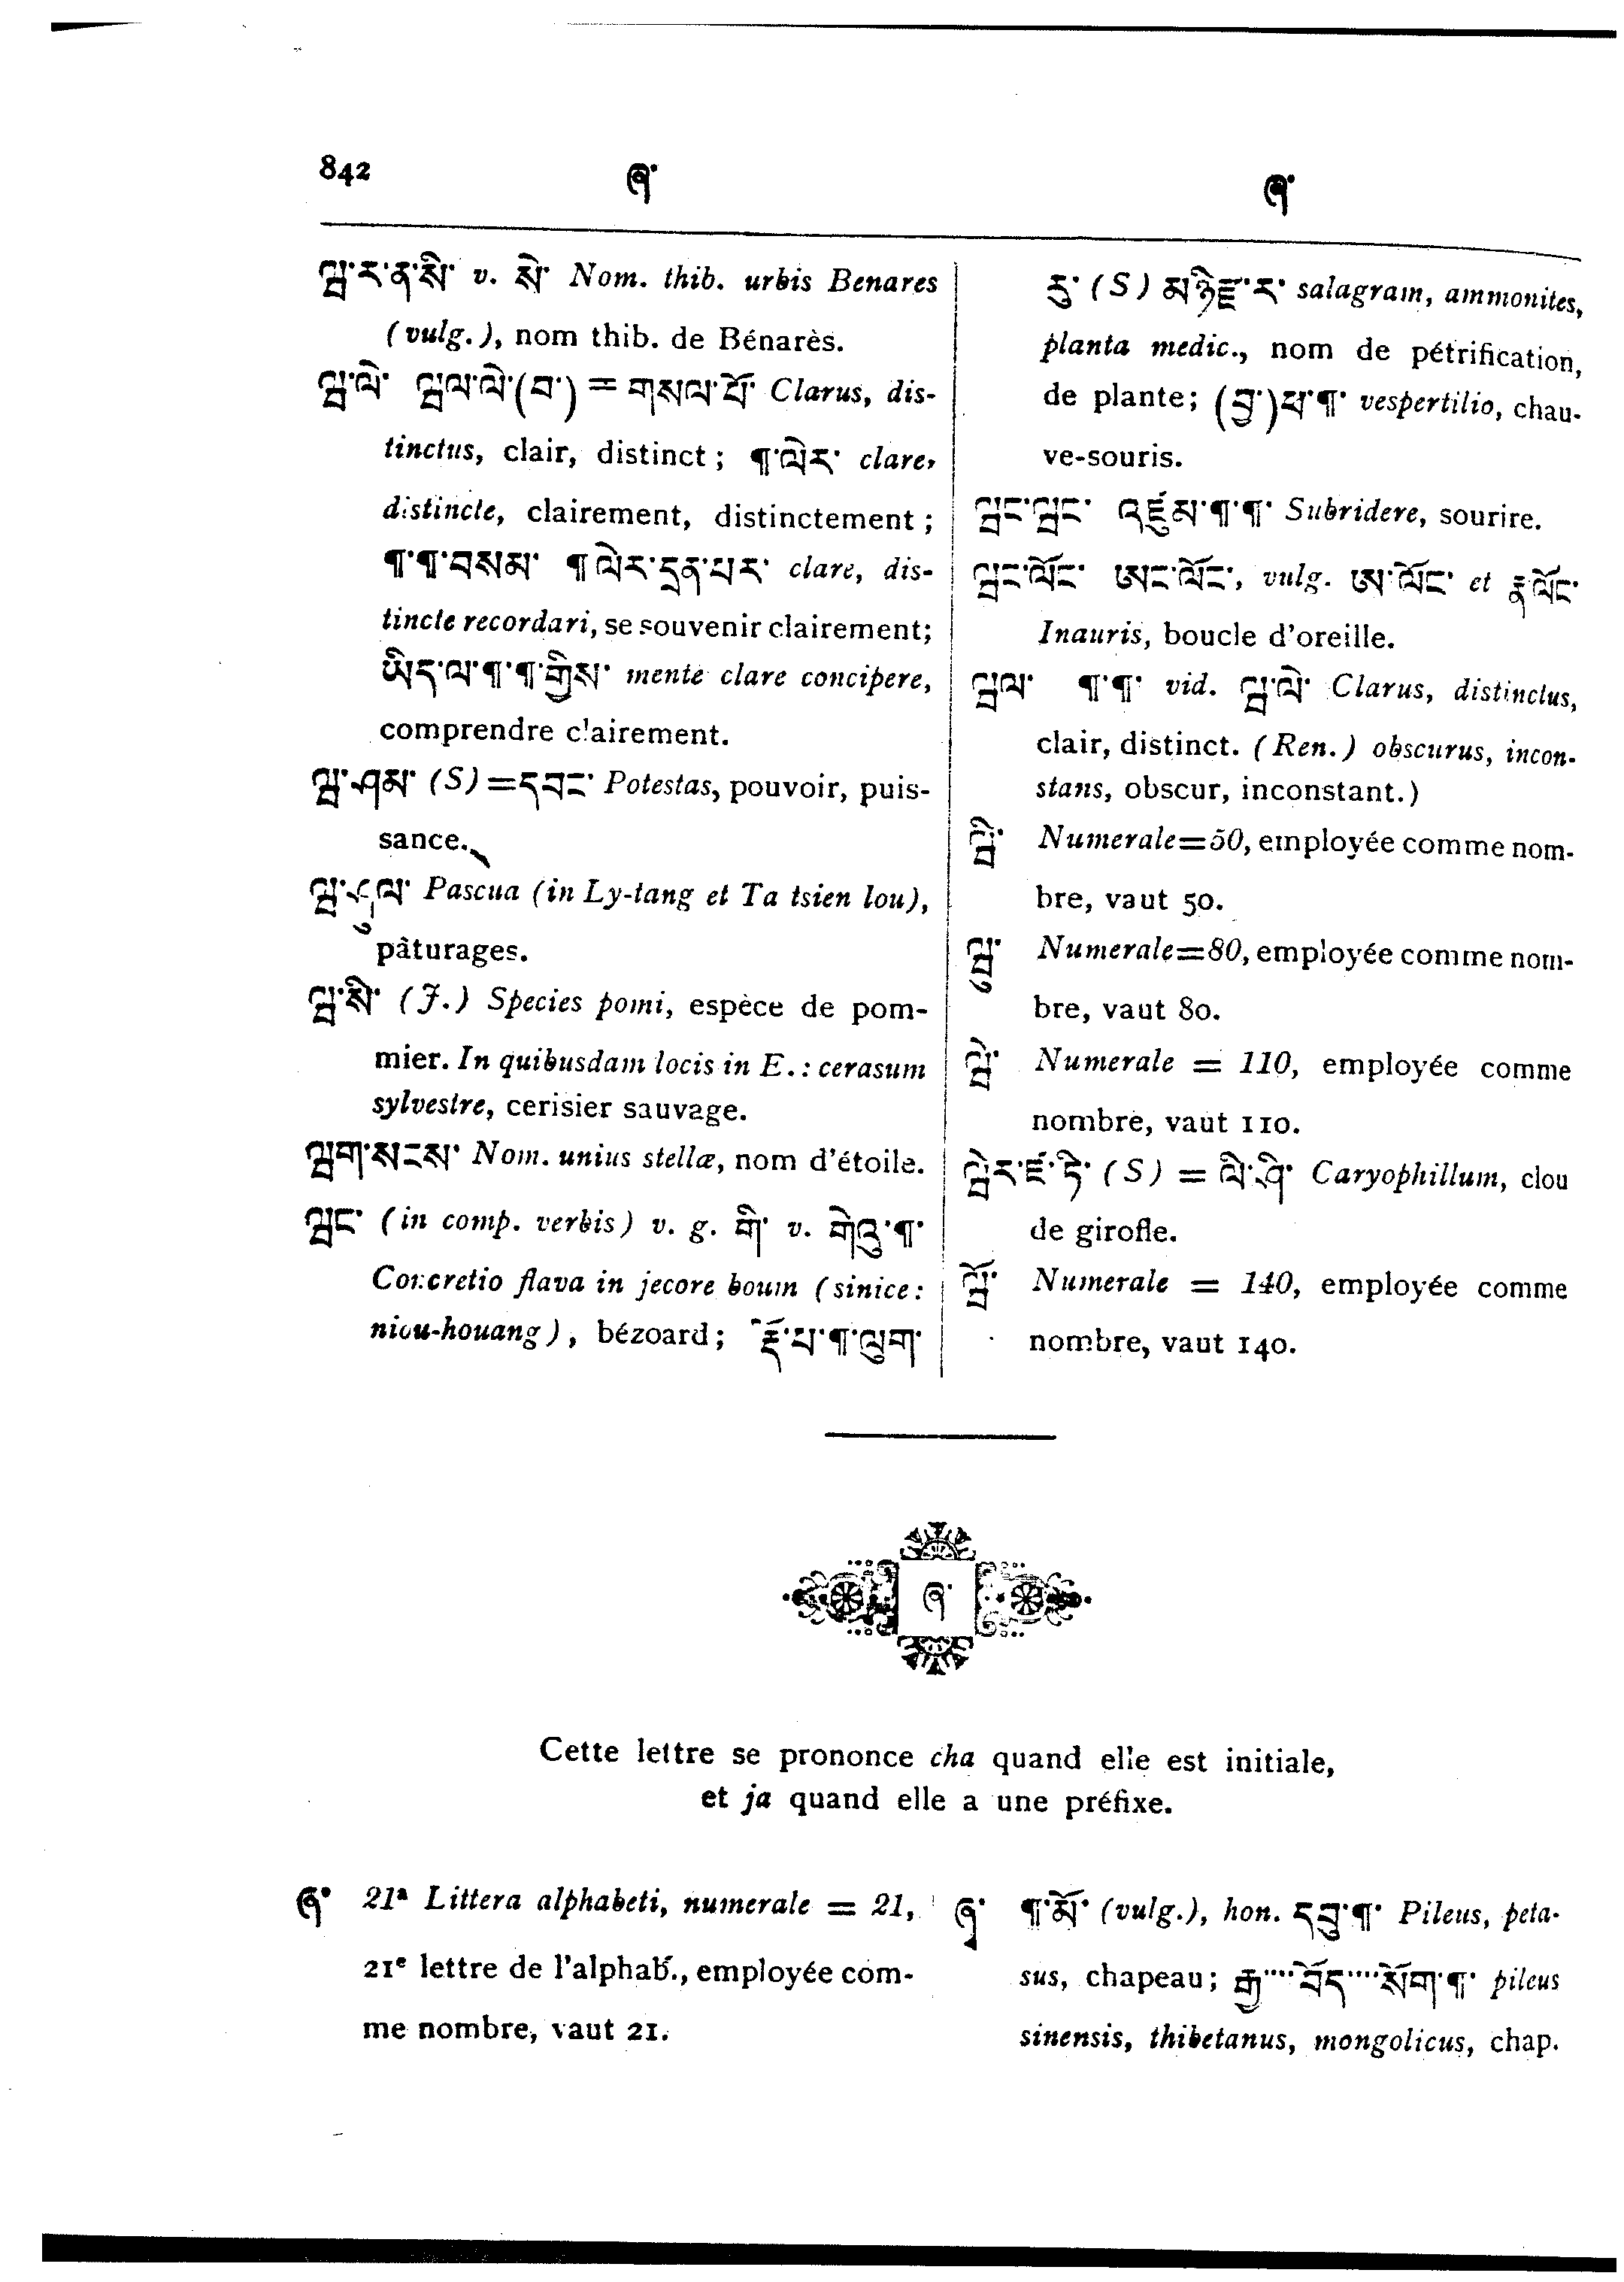 842
ཞ་
ཞ་
ཝ་ར་ན་སི་ v. སེ་ Nom. thib. urbis Benares
(vulg.), nom thib. de Bénarès.
ཝ་ལེ་ ཝལ་ལེ་(བ་) = གསལ་པོ་ Clarus, dis-
tinctus, clair, distinct; ¶་ལེར་ clare,
distincte, clairement, distinctement;
¶་¶་བསམ་ ¶ལེར་དྲན་པར་ clare, dis-
tincte recordari, se souvenir clairement;
ཡིད་ལ་¶་¶་གྱིས་ mente clare concipere,
comprendre clairement.
ཝ་ཤམ་ (S) = དབང་ Potestas, pouvoir, puis-
sance.
Pascua (in Ly-tang et Ta tsien lou),
pâturages.
ཝ་སི་ (J.) Species pomi, espèce de pom-
mier. In quibusdam locis in E.: cerasum
sylvestre, cerisier sauvage.
ཝག་སངས་ Nom. unius stellæ, nom d'étoile.
ཝང་ (in comp. verbis) v. g. གི་ v. གེའུ་¶་
Concretio flava in jecore boum (sinice:
niou-houang), bézoard; ¶་ལུག་
རུ་ (S) salagram, ammonites,
planta medic., nom de pétrification,
de plante; (བྱ་)ཕ་¶་ vespertilio, chau-
ve-souris.
ཝང་ཝང་ འཛུམ་¶་¶་ Subridere, sourire.
ཝང་ལོང་ ཨང་ལོང་, vulg. ཨ་ལོང་ et རྣ་ལོང་
Inauris, boucle d'oreille.
ཝལ་ ¶་¶་ vid. ཝ་ལེ་ Clarus, distinctus,
clair, distinct. (Ren.) obscurus, incon-
stans, obscur, inconstant.)
ཝི་ Numerale=50, employée comme nom-
bre, vaut 50.
ཝུ་ Numerale=80, employée comme nom-
bre, vaut 80.
ཝེ་ Numerale = 110, employée comme
nombre, vaut 110.
(S) = ལི་ཤི་ Caryophillum, clou
de girofle.
ཝོ་ Numerale = 140, employée comme
nombre, vaut 140.
ཞ་
Cette lettre se prononce cha quand elle est initiale,
et ja quand elle a une préfixe.
ཞ་ 21ª Littera alphabeti, numerale = 21,
21ᵉ lettre de l'alphab., employée com-
me nombre, vaut 21.
ཞྭ་ ¶་མོ་ (vulg.), hon. དབུ་¶་ Pileus, peta-
sus, chapeau; རྒྱ····བོད····སོག་¶་ pileus
sinensis, thibetanus, mongolicus, chap.